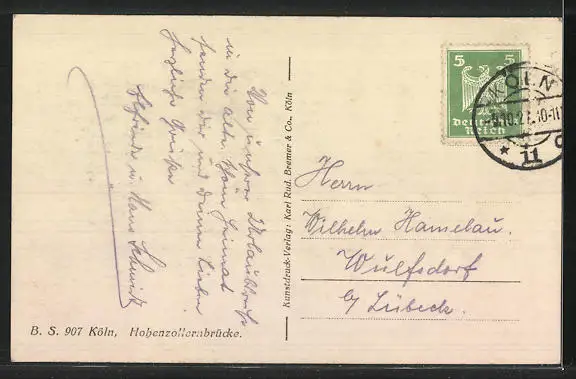 Von unserer Urlaubsreise
in die alte Heimat
senden dir und deinen Lieben
herzliche Grüße
Elfriede u. Hans Schmidt
B. S. 907 Köln, Hohenzollernbrücke.
Kunstdruck-Verlag: Karl Rud. Bremer & Co., Köln
5 5
Deutsches
Reich
KÖLN
10-11
* 11
Herrn
Wilhelm Hamelau.
Wulfsdorf
b/ Lübeck.